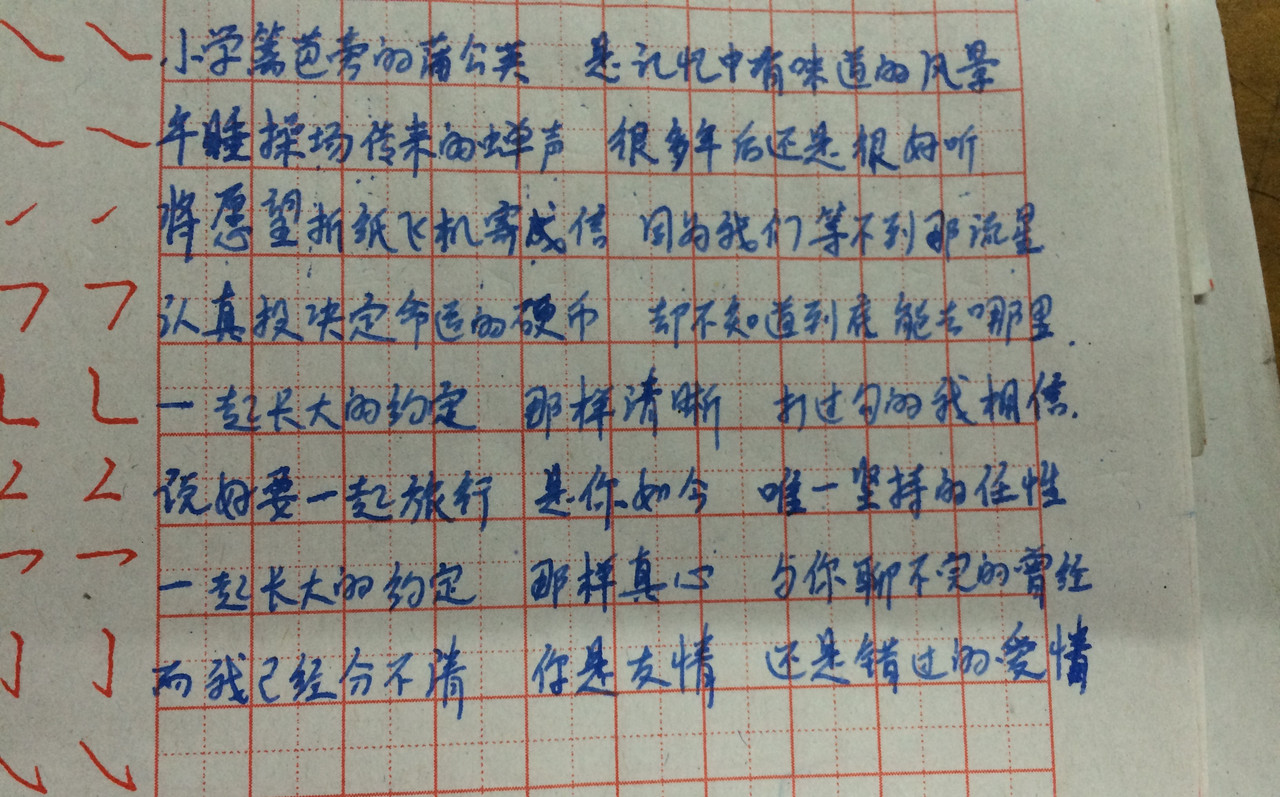 小学篱芭旁的蒲公英 是记忆中有味道的风景
午睡操场传来的蝉声 很多年后还是很好听
将愿望折纸飞机寄成信 因为我们等不到那流星
认真投决定命运的硬币 却不知道到底能去哪里.
一起长大的约定 那样清晰 打过勾的我相信.
说好要一起旅行 是你如今 唯一坚持的任性
一起长大的约定 那样真心 与你聊不完的曾经
而我已经分不清 你是友情 还是错过的爱情